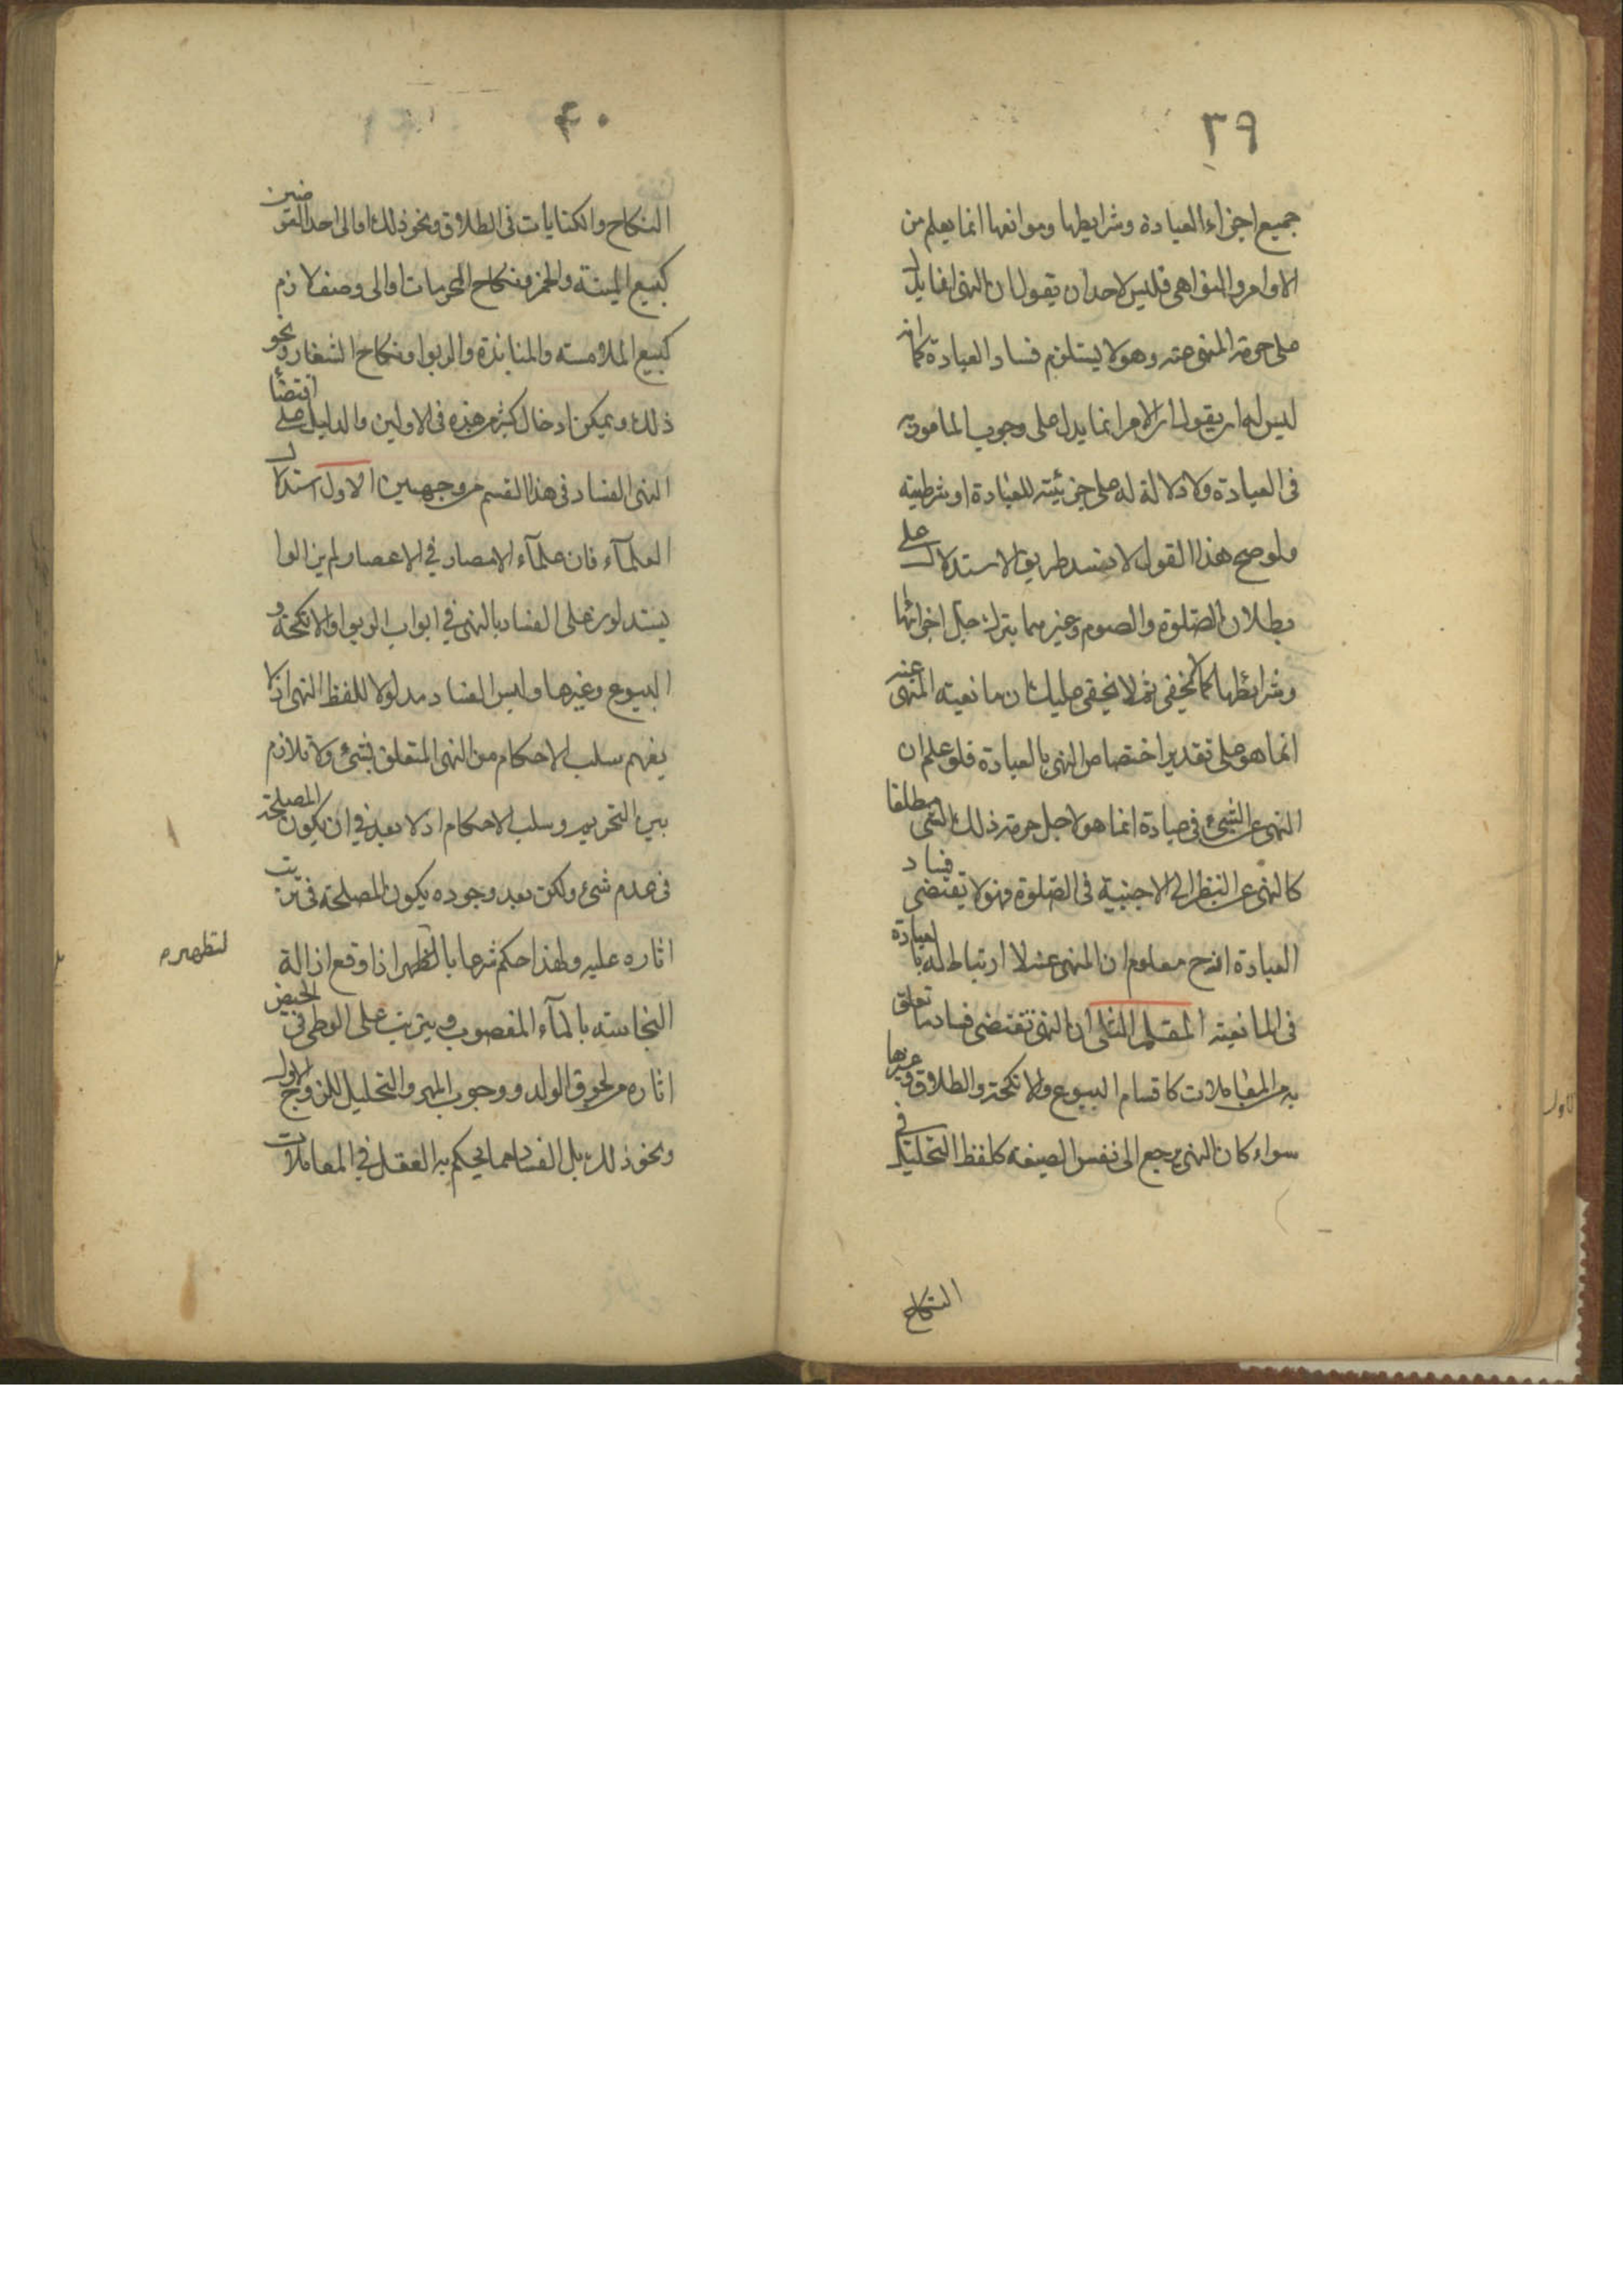 ٣٩
جميع اجزاء العبادة وشرايطها وموانعها انما يعلم من
الاوامر والنواهى فليس لاحد ان يقول ان النهى انما يدل
على حرمة المنهى عنه وهو لا يستلزم فساد العبادة كما انه
ليس له ان يقول ان الامر انما يدل على وجوب المامور به
فى العبادة ولا دلالة له على جزئيته للعبادة او شرطيته
ولو صح هذا القول لا نسد طريق الاستدلال على
بطلان الصلوة والصوم وغيرهما بترك جل اجزائها
وشرائطها كما لا يخفى ثم لا يخفى عليك ان مانعية المنهى عنه
انما هو على تقدير اختصاص النهى بالعبادة فلو علم ان
النهى عن الشىء فى عبادة انما هو لاجل حرمة ذلك الشى مطلقا
كالنهى عن النظر الى الاجنبية فى الصلوة فهو لا يقتضى فساد
العبادة اذ ح معلوم ان المنهى عنه لا ارتباط له بالعبادة
فى المانعية المقام الثانى ان النهى تقتضى فساد ما تعلق
به من المعاملات كاقسام البيوع والانكحة والطلاق وغيرها
سواء كان النهى يرجع الى نفس الصيغة كلفظ التحليل فى
النكاح
٤٠
النكاح والكنايات فى الطلاق ونحو ذلك او الى احد العوضين
كبيع الميتة والخمر ونكاح المحرمات او الى وصف لازم
كبيع الملامسه والمنابذة والربوا ونكاح الشغار ونحو
ذلك ويمكن ادخال كثير من هذه فى الاولين والدليل على اقتضاء
النهى الفساد فى هذا القسم من وجهين الاول استدلال
العلمآء فان علمآء الامصار في الاعصار لم يزالوا
يستدلون على الفساد بالنهى في ابواب الربوا والانكحة و
البيوع وغيرها وليس الفساد مدلولا للفظ النهى اذ لا
يفهم سلب الاحكام من النهى المتعلق بشئ ولا تلازم
بين التحريم وسلب الاحكام اذ لا بعد في ان يكون المصلحة
فى عدم شئ ولكن بعد وجوده يكون المصلحة فى ترتب
اثاره عليه ولهذا حكم شرعا بالتطهر اذا وقع ازالة
لتطهره
النجاسته بالمآء المغصوب ويترتب على الوطى فى الحيض
اثاره من لحوق الولد ووجوب المهر والتحليل للزوج الاول
ونحو ذلك بل الفساد مما يحكم به العقل في المعاملات